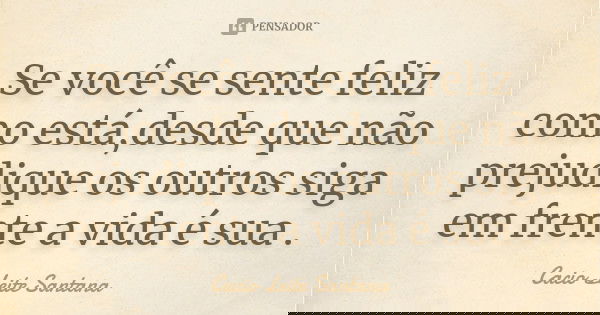 PENSADOR
Se você se sente feliz
como está,desde que não
prejudique os outros siga
em frente a vida é sua .
Cacio Leite Santana